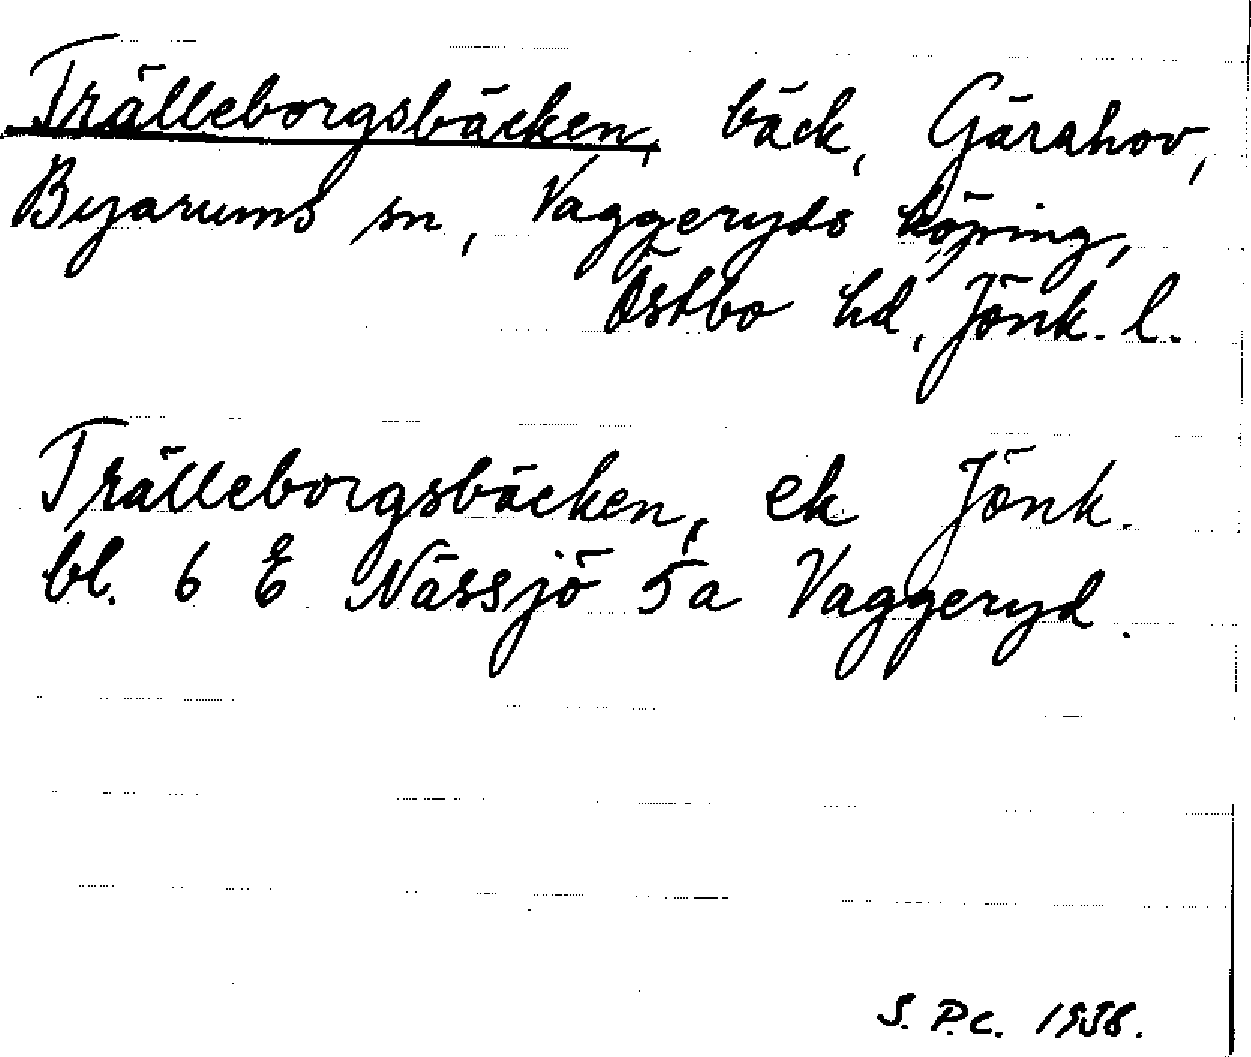 Trälleborgsbäcken, bäck, Gärahov,
Byarums sn, Vaggeryds köping,
Östbo hd, Jönk. l.
Trälleborgsbäcken, ek Jönk.
bl. 6 E Nässjö 5a Vaggeryd.
S. P.C. 1958.